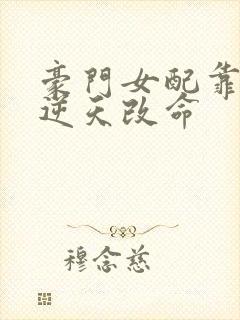 豪門女配靠
逆天改命
穆念慈